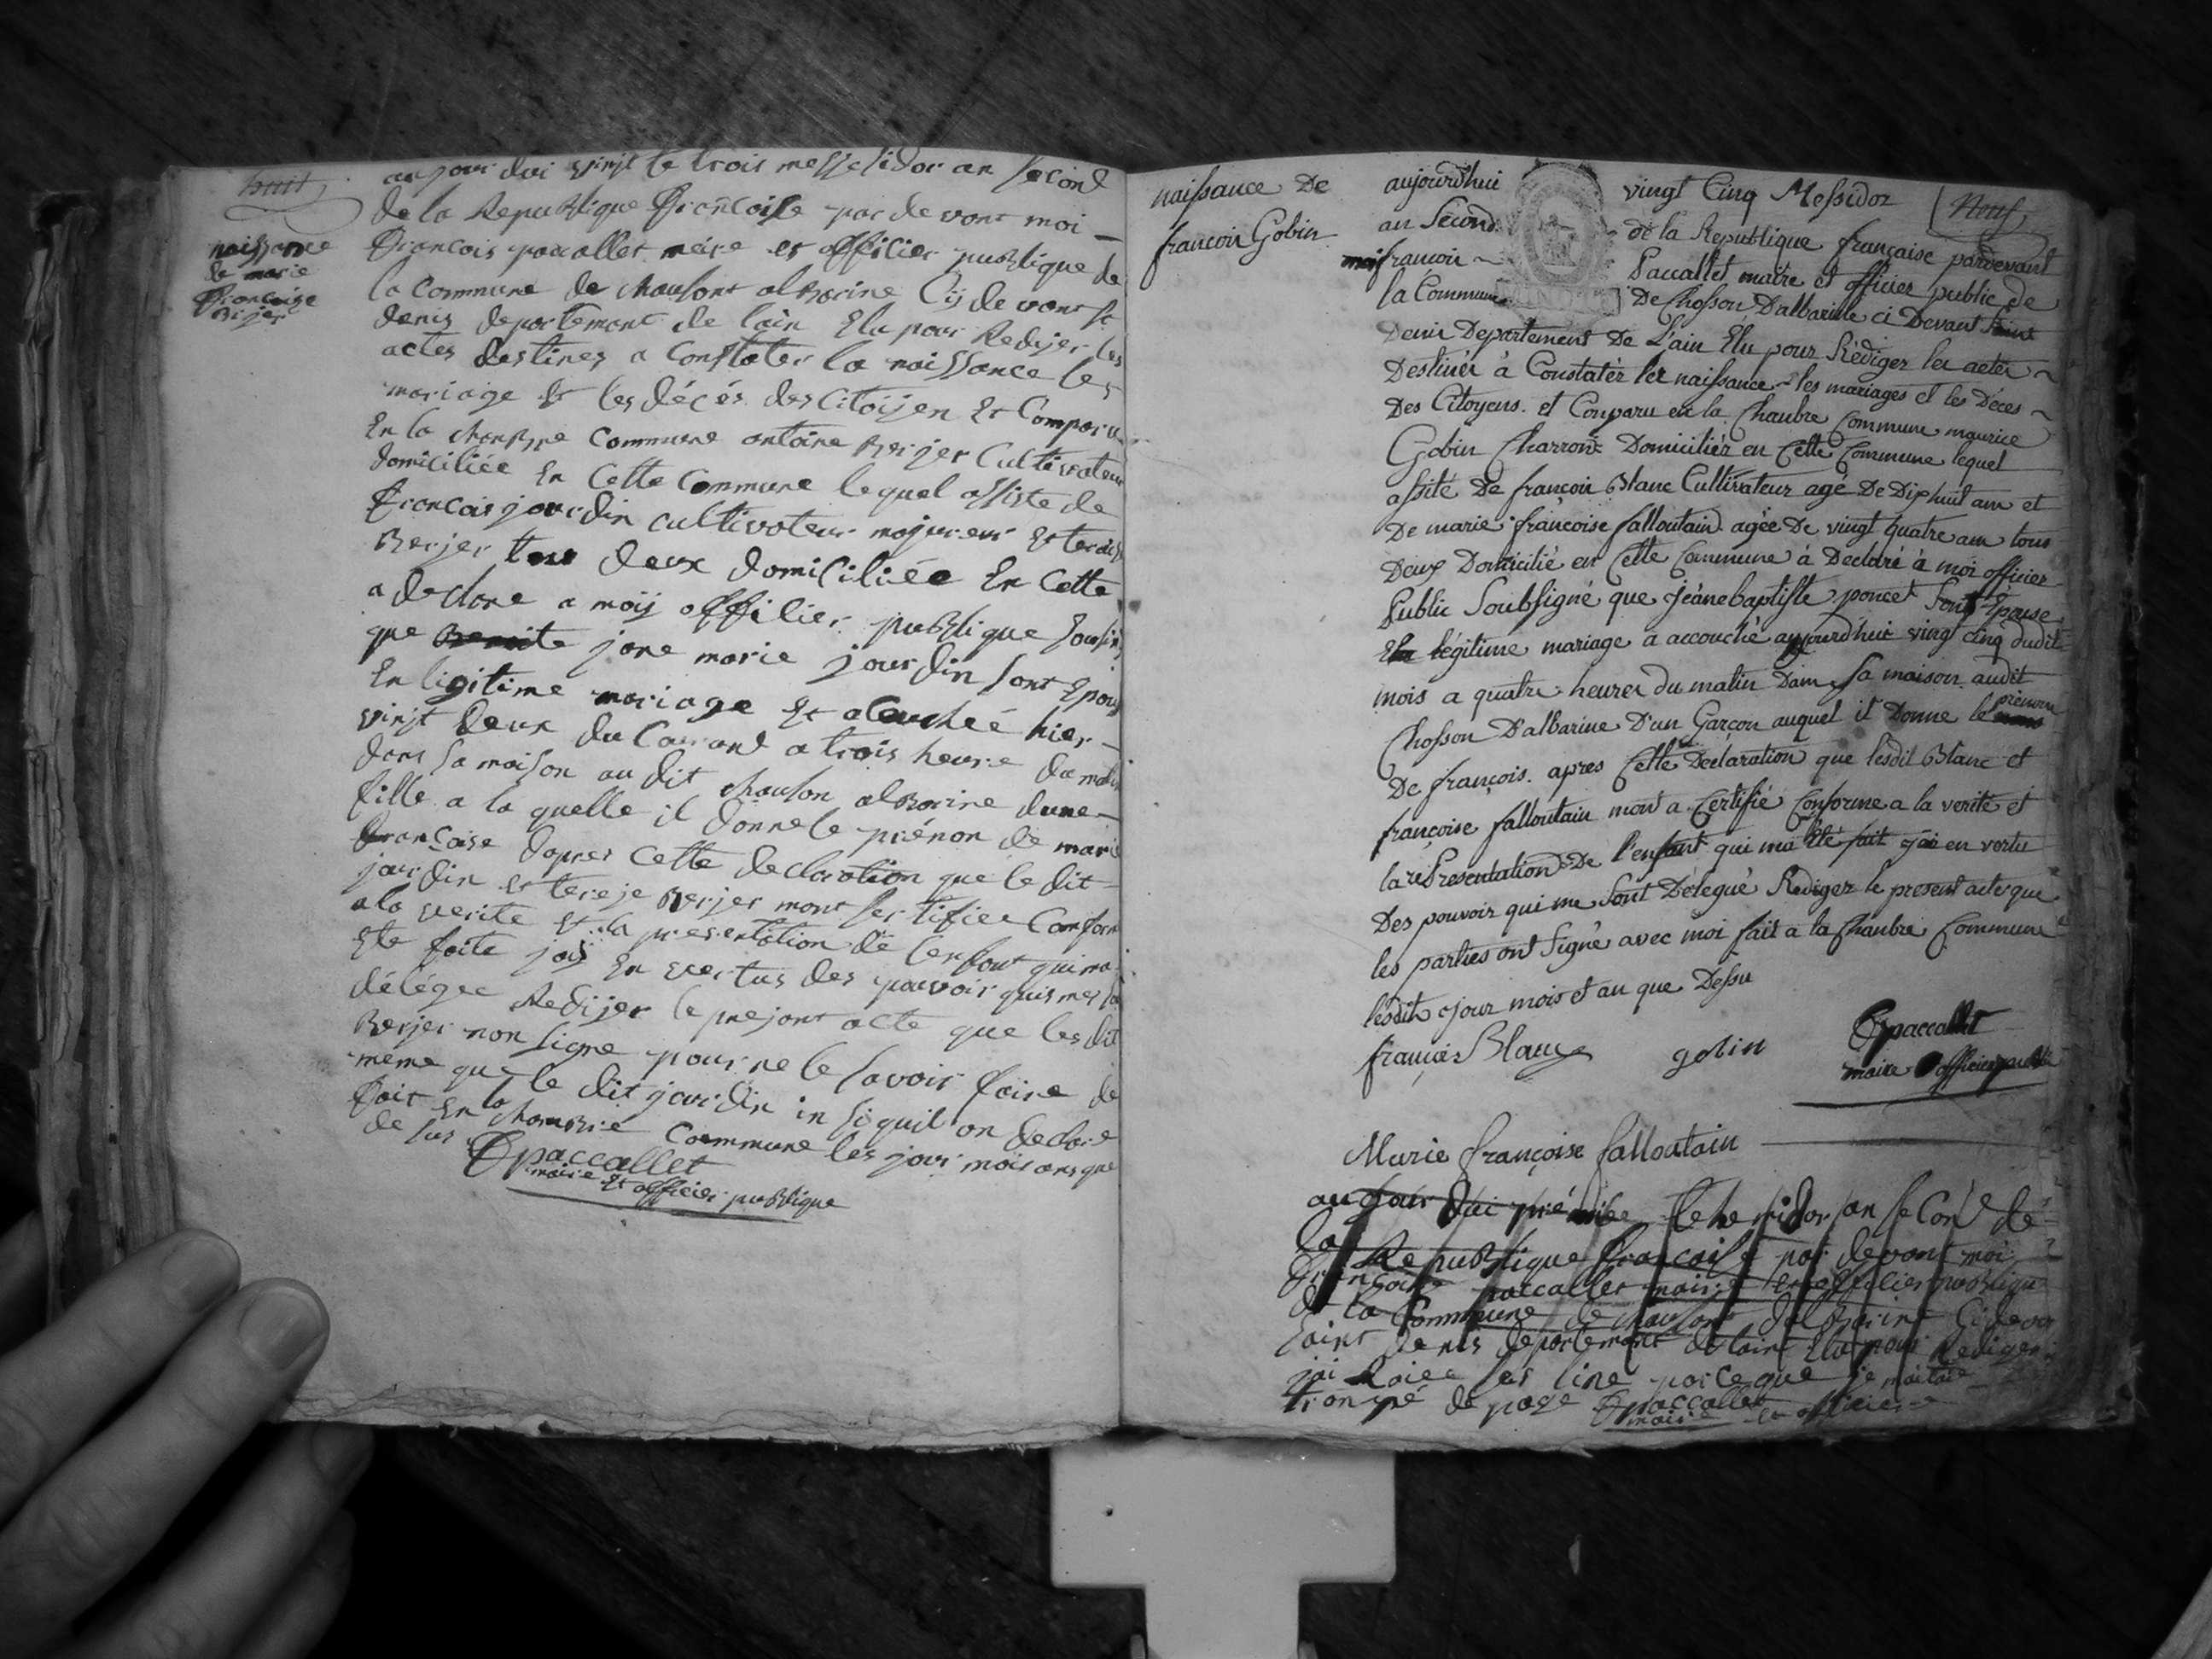 huit
naissance
de marie
françoise
Berjer
au jour dui vinjt te trois messelidor an second
de la Republique francoise par de vant moi
francois paccallet meire et offilier publique de
la commune de chauson albarine cij devant st
denis departement de lain Elu pour Redijer les
actes destines a constater la naissance les
mariage et les décés des citoijen Et Comparu
En la chambre commune antoine Berjer cultivateur
domiciliée En Cette Commune lequel assiste de
francois jourdin cultivateur majureur Et terese
Berjer tous deux domiciliée En Cette
a declare a moij offilier publique sousin
que jane marie jourdin sont Epous
En ligitime mariage Et acouchée hier
vinjt deux du Courant a trois heure du matin
dans sa maison au dit chauson albarine dune
fille a la quelle il donne le prénon de marie
francoise dapres cette declaration que le dit
jourdin et tereje Berjer mont sertifiee Conform
a la verite et la presentation de lenfant qui ma
Ete faite jaij En vertus des pouvoir quis me son
délégee Redijer le prejant acte que les dit
Berjer non signe pour ne le savoir faire de
meme que le dit jourdin in si quil on declare
fait En la chambre commune les jour mois ans que
de sus
fpaccallet
maire Et officier publique
naissance De
francoir Gobin
Neuf
aujourd'hui vingt Cinq Messidor
an Second de la Republique française pardevant
moi francoir Paccallet maire et officier public de
la Commune De Chosson D'albarine ci Devant Saint
Denir Departement De L'ain Elu pour Rédiger les acter
Destinér à Constatér les naissance les mariages et les Décès
Des Citoyens et Conparu en la Chanbre Commune maurice
Gobin Charron Domiciliér en Cette Commune lequel
assité De françoir Blanc Cultivateur agé De Dix huit ans et
De marie françoise falloutain agée De vingt quatre ans tous
Deux Domicilié en Cette Commune à Declaré à moi officier
Public Soubsigné que Jeànebaptiste poncet Sont Epouse
En légitime mariage a accouché aujourdhui vingt cinq dudit
mois a quatre heurer du matin Dans Sa maison audit
Chosson D'albarine D'un Garçon auquel il Donne le prénom
De françois. apres Cette Declaration que lesdit Blanc et
françoise falloutain mont a Certifié Conforme a la verité et
la rePresentation De l'enfant qui ma Eté fait j'ai en vertu
Des pouvoir qui me Sont Délegué Rediger le present acte que
les parties ont Signé avec moi fait a la Chanbre Commune
lesdits jour mois et an que Dessu
françois Blanc gobin fpaccallet
maire officier public
Marie françoise falloutain
au jour dui premier termidor an second de
la Republique francoise par devant moi
francoise paccallet maire et offilier publique
de la Commune de chauson dalbarine Ci devan
saint denis departement de lain Elu pour Redigeri
jai Raiee ses line parceque je maitais
trompé de page fpaccallet
maire et officier